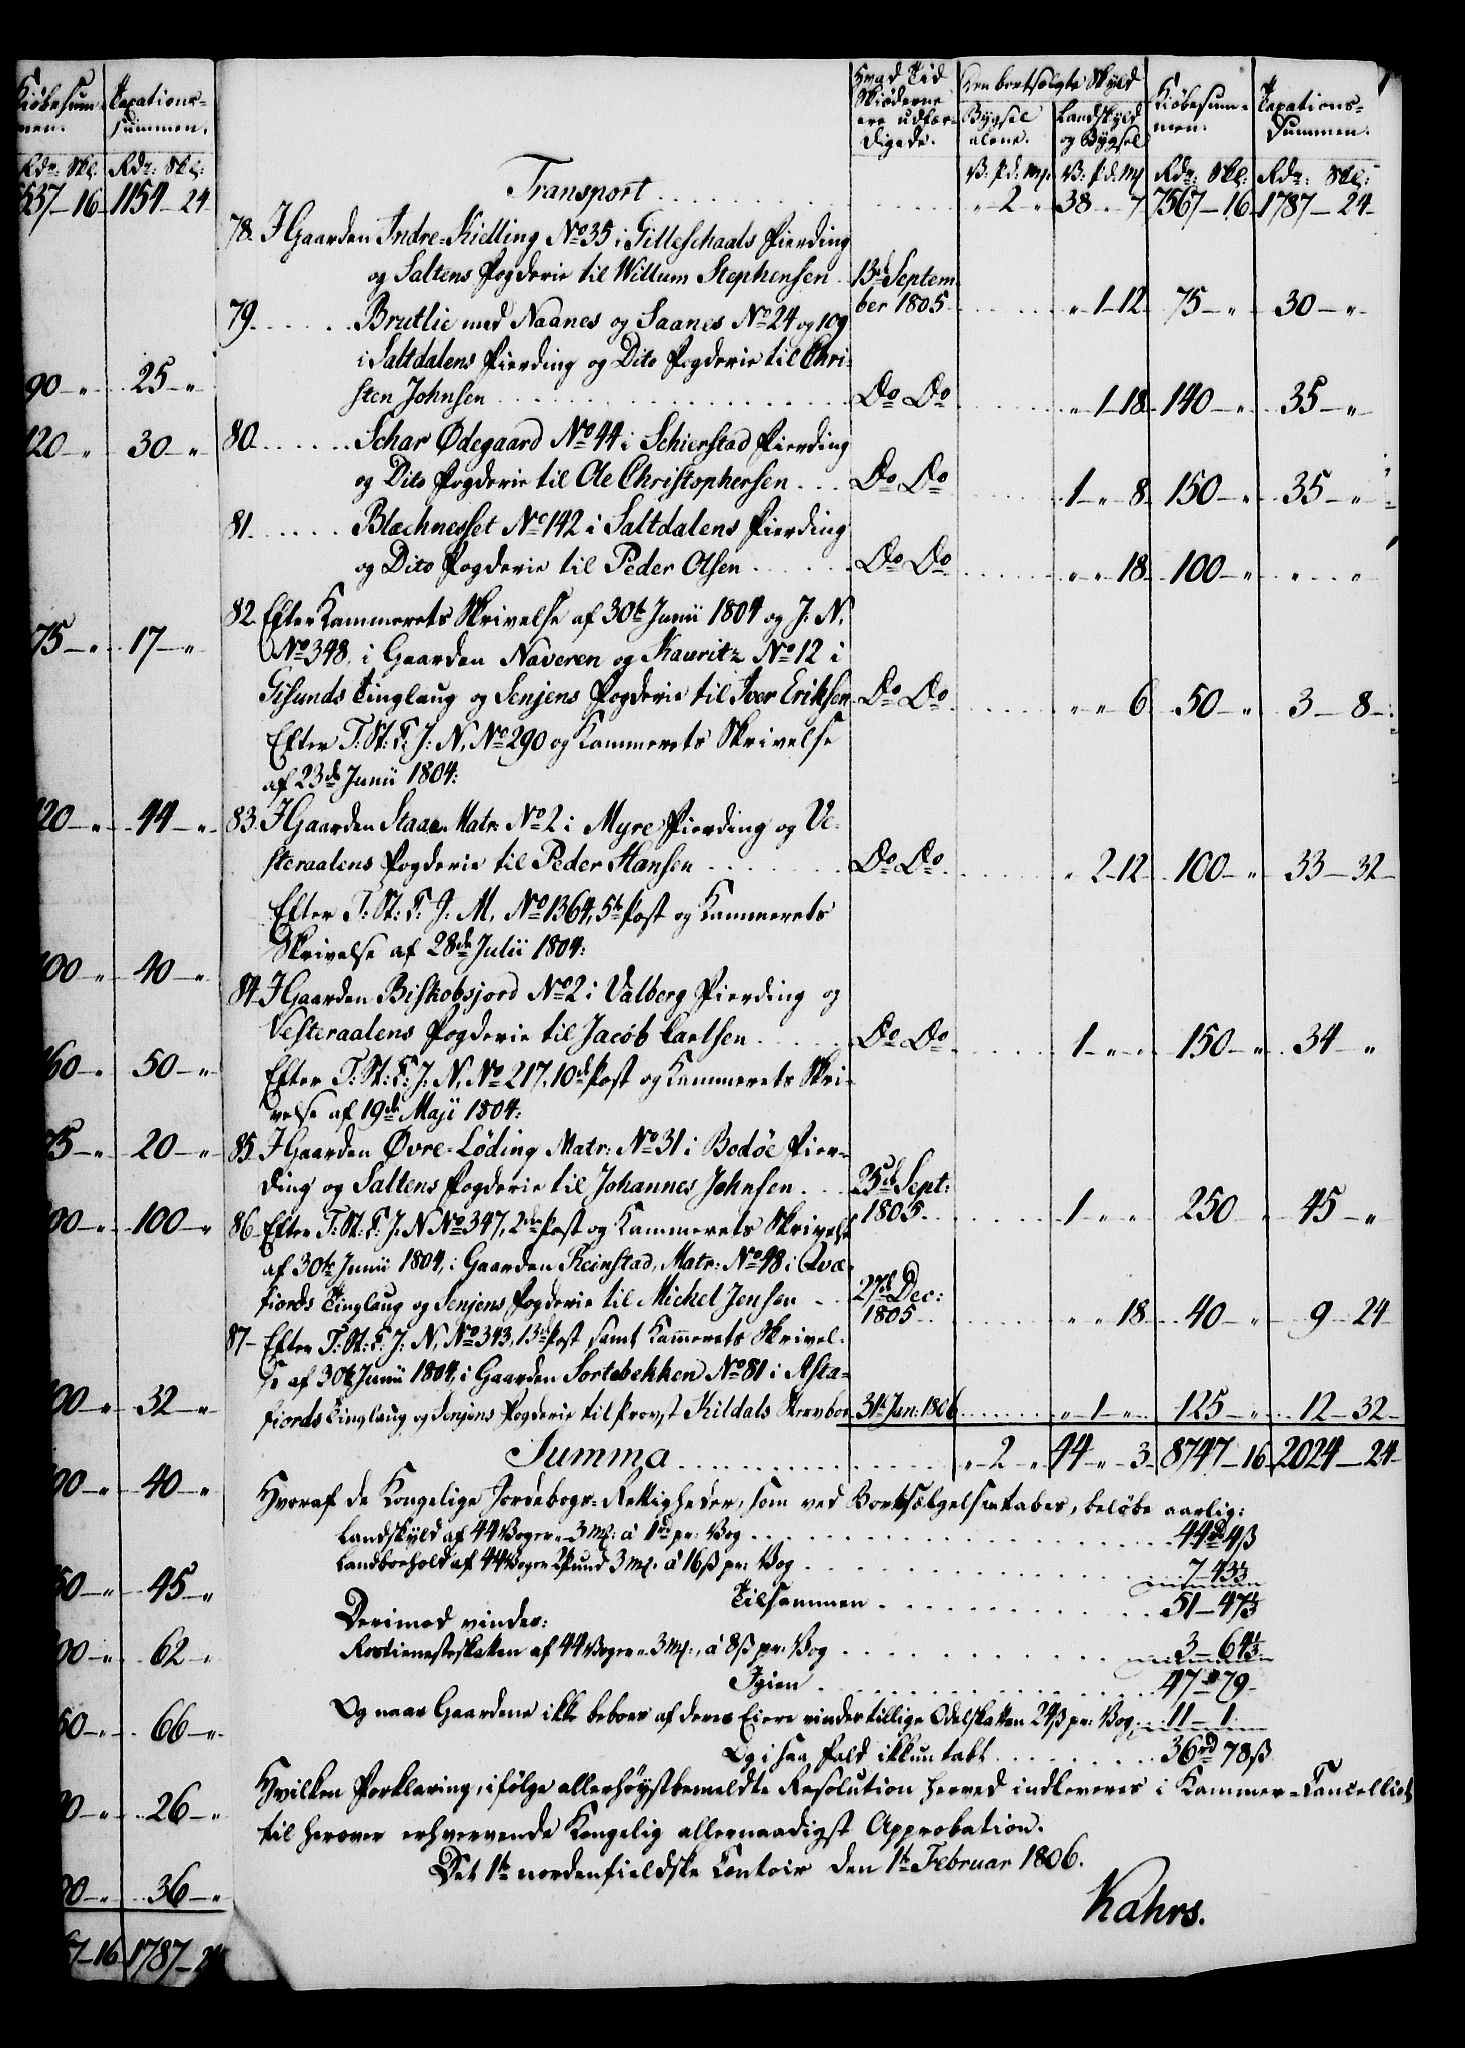 Kiöbesum- Taxations-
men. summen.
Rdr: Skl: Rdr: Skl:
557–16 1154–24
90–" 25–"
120–" 30–"
75–" 17–"
120–" 44–"
100–" 40–"
160–" 50–"
75–" 20–"
100–" 100–"
100–" 32–"
100–" 40–"
50–" 45–"
00–" 62–"
50–" 66–"
0–" 26–"
00–" 36–"
7–16 1787–24
Hvad Tid Skiöderne ere udfær- digede.
Den bortsolgte Skyld
Bygsel alene. Landskyld og Bygsel
Kiöbesum- men.
Taxations- Summen.
V: pd: mk. V: pd: mk Rdr: Skl: Rdr: Skl:
Transport . . . . . " 2 " 38 " 7 7567–16 1787–24
78. I Gaarden Indre-Kielling No 35 i Gilleschaals Fierding
og Saltens Fogderie til Willum Stephensen 13de Septem-
ber 1805 " 1–12 75–" 30–"
79. . . . . . Brutlie med Naanes og Saanes No 24 og 109
i Saltdalens Fierding og Dito Fogderie til Chri-
sten Johnsen . . . . . Do Do " 1–18 140–" 35–"
80. . . . . . Schar Ødegaard No 44 i Schierstad Fierding
og Dito Fogderie til Ole Christophersen . . . Do Do 1 " 8 150–" 35–"
81. . . . . . Blachnesset No 142 i Saltdalens Fierding
og Dito Fogderie til Peder Olsen . . . . . Do Do " " 18 100–" " "
82. Efter Kammerets Skrivelse af 30te Junii 1804 og J. N.
No 348, i Gaarden Naveren og Kauritz No 12 i
Gisunds Tinglaug og Senjens Fogderie til Iver Eriksen Do Do " " 6 50–" 3–8
Efter T: St: F: J: N, No 290 og Kammerets Skrivelse
af 23de Junii 1804:
83. I Gaarden Staae Matr: No 2 i Myre Fierding og Ve-
steraalens Fogderie til Peder Hansen . . . . . Do Do " 2–12 100–" 33–32
Efter T: St: F: J. M, No 1364, 5te Post og Kammerets
Skrivelse af 28de Julii 1804:
84. I Gaarden Biskobsjord No 2 i Valberg Fierding og
Vesteraalens Fogderie til Jacob Carlsen . . . . . Do Do 1 " " 150–" 34–"
Efter T: St: F: J. N, No 217, 10de Post og Kammerets Skri-
velse af 19de Maji 1804:
85. I Gaarden Øvre-Löding Matr: No 31 i Bodöe Fier-
ding og Saltens Fogderie til Johannes Johnsen . . . 25de Sept:
1805 1 " " 250 " 45–"
86– Efter T: St: F: J. N No 347, 2den Post og Kammerets Skrivelse
af 30te Junii 1804, i Gaarden Reinstad, Matr: No 48 i Qvæ-
fiords Tinglaug og Senjens Fogderie til Michel Jensen . . 27de Dec:
1805 " " 18 40–" 9–24
87– Efter T: St: F: J: N, No 343, 13de Post samt Kammerets Skrivel-
se af 30te Junii 1804, i Gaarden Sortebekken No 81 i Asta-
fiords Tinglaug og Senjens Fogderie til Provst Kildals Stervboe 31te Jan: 1806 " 1 " 125–" 12–32
Summa . . . . . " 2 " 44 " 3 8747–16 2024–24
Hvoraf de Kongelige Jordebogs-Rettigheder, som ved Bortsælgelsen tabes, beløbe aarlig:
Landskyld af 44 Voger " 3 mk: à 1 rd pr: Vog . . . . . 44 rd 4 ß
Landboehold af 44 Voger 2 Pund 3 mk: à 16 ß pr: Vog . . . . . 7–43⅓
Tilsammen . . . . . 51–47⅓
Derimod vindes:
Rostienesteskatten af 44 Voger " 3 mk:, à 8 ß pr: Vog . . . . . 3–64⅓
Igien . . . . . 47–79
Og naar Gaardene ikke beboes af deres Eiere vindes tillige Odelskatten 24 ß pr: Vog . . 11–1
Og i saa Fald ikkun tabt . . . . . 36 rd 78 ß
Hvilken Forklaring, ifölge allerhöystbemeldte Resolution herved indleveres i Kammer-Cancelliet
til herover erhvervende Kongelig allernaadigst Approbation.
Det 1te nordenfieldske Contoir den 1te Februar 1806.
Kahrs.